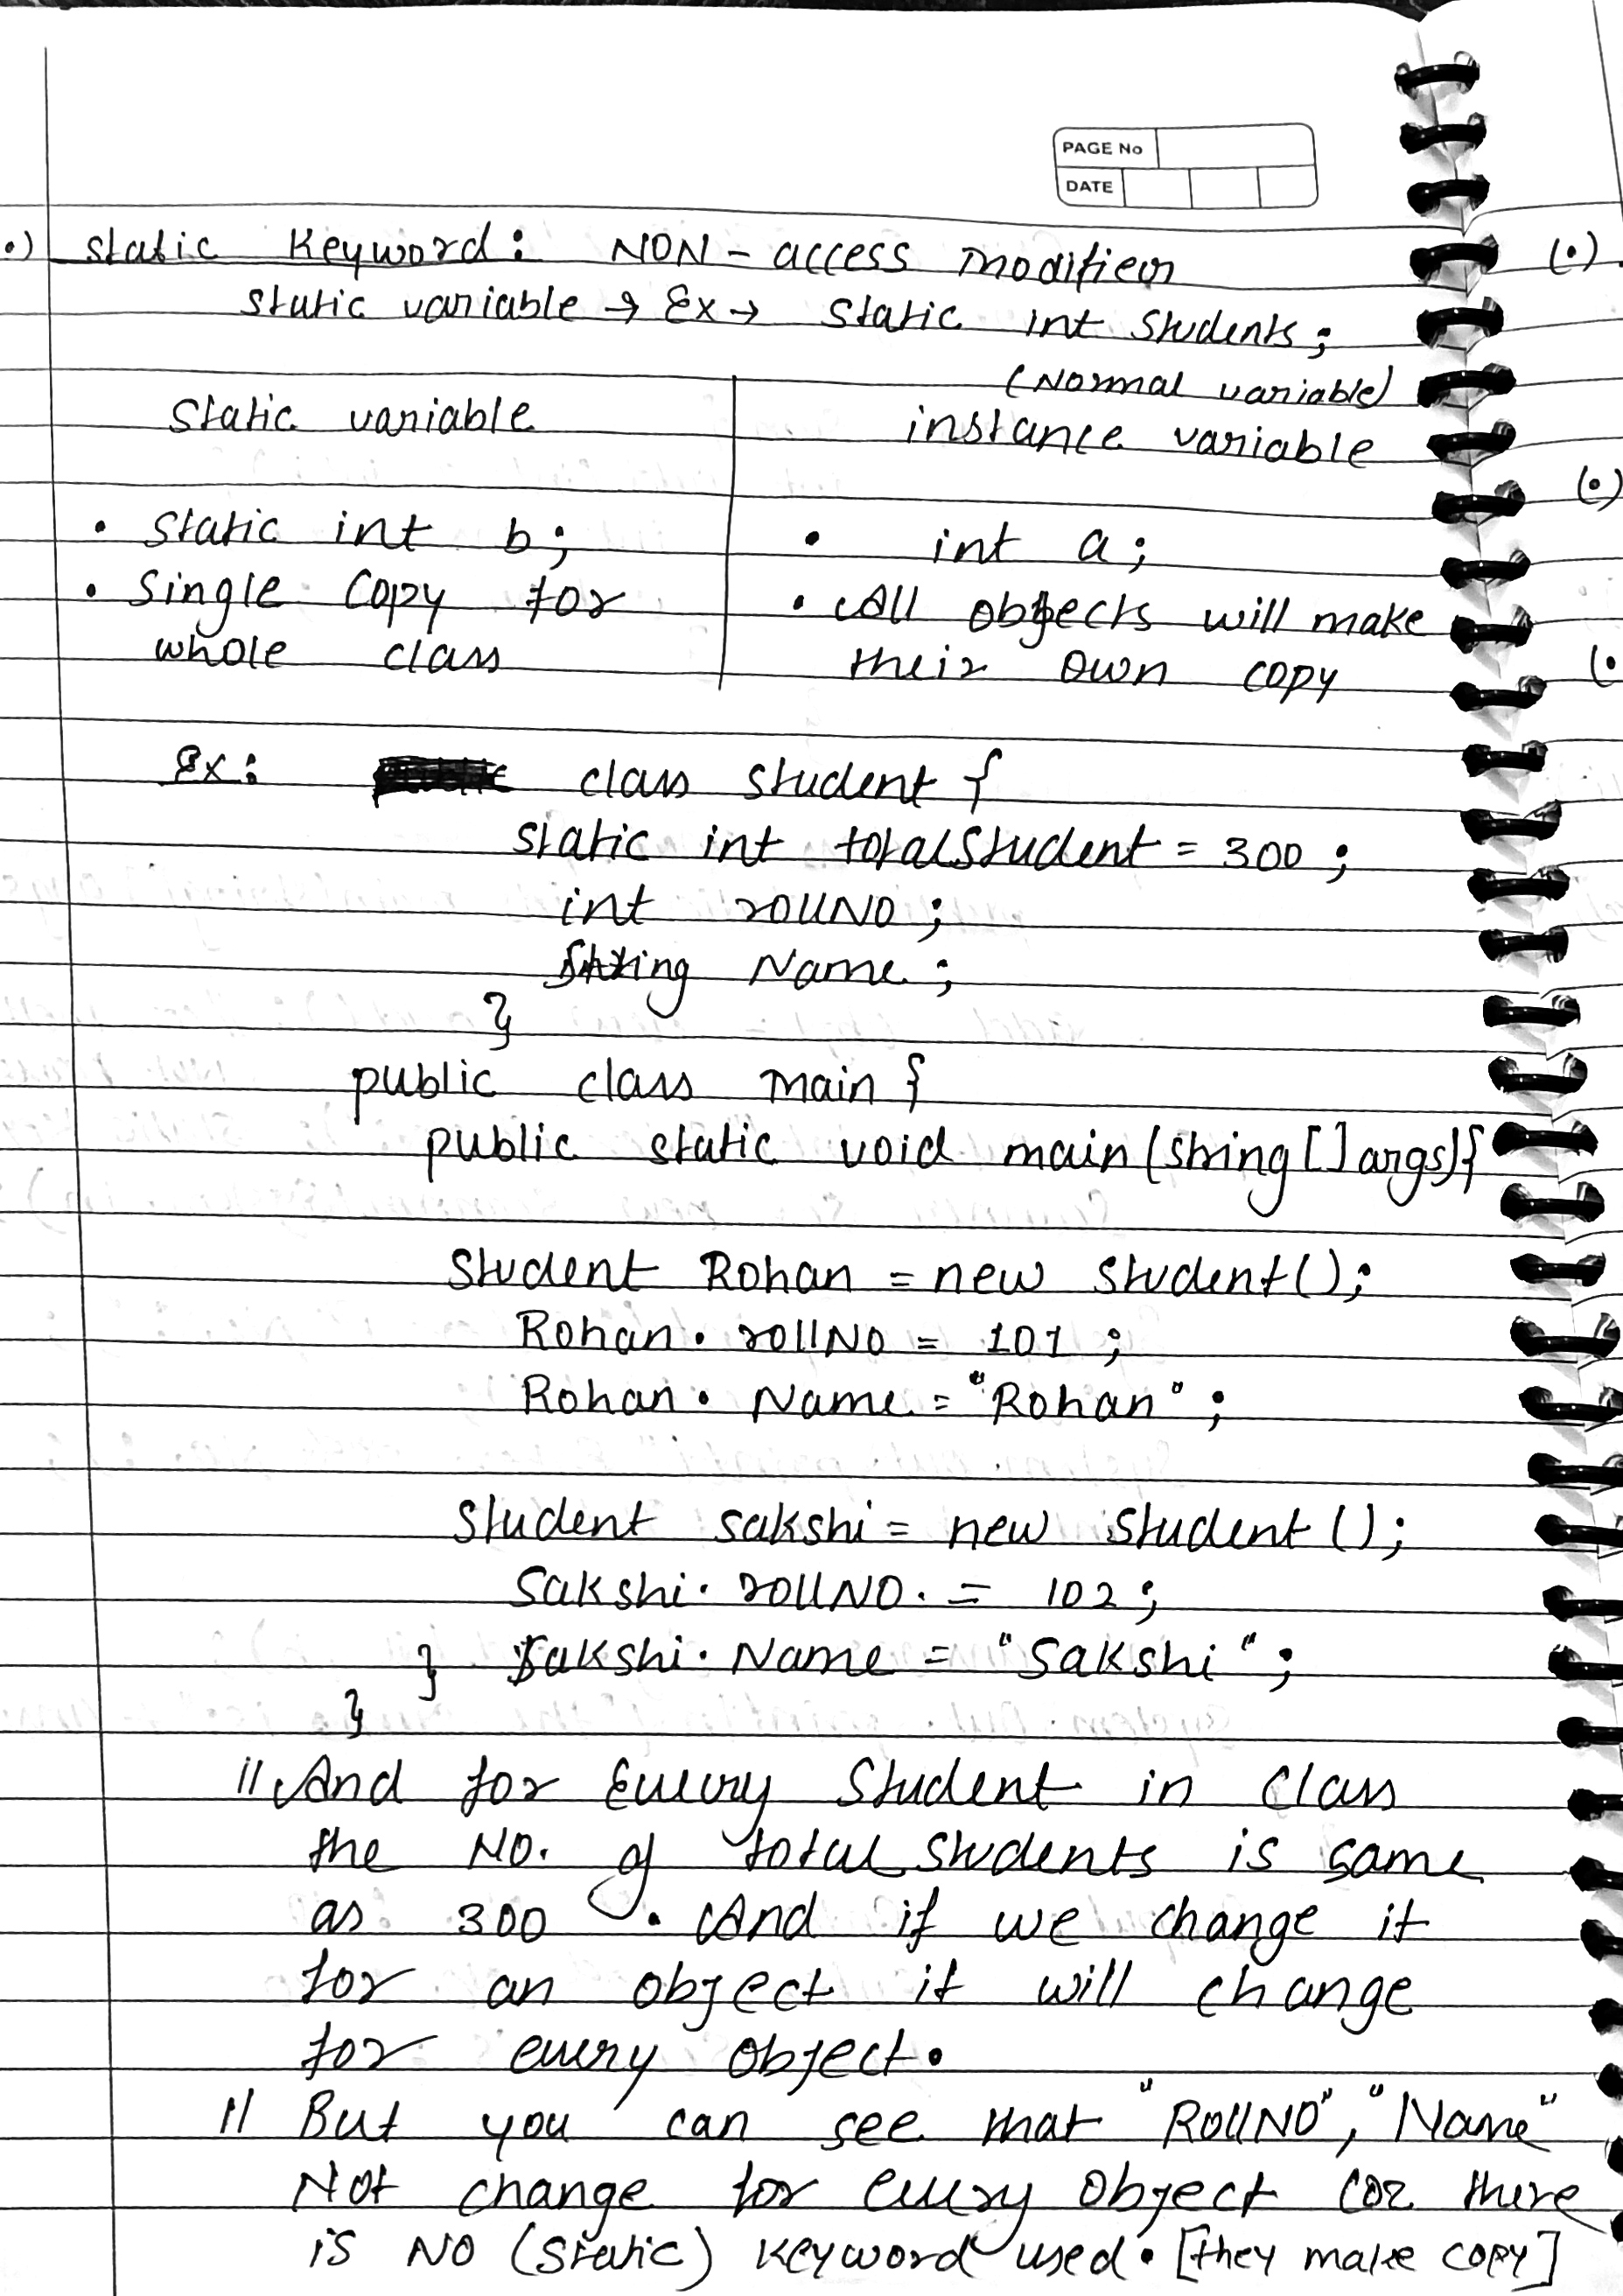 PAGE No
DATE
•) static Keyword: NON - access modifier (•)
static variable → Ex → static int students;
(Normal variable)
static variable instance variable
(•)
• static int b; • int a;
• Single Copy for • All objects will make
whole class their own copy
(•
Ex: class student {
static int totalStudent = 300 ;
int rollNO ;
String Name ;
}
public class main {
public static void main (string [] args){
Student Rohan = new student();
Rohan . rollNO = 101 ;
Rohan . Name = "Rohan" ;
student sakshi = new student ();
Sakshi . rollNO . = 102 ;
} Sakshi . Name = "Sakshi" ;
}
// And for Every Student in Class
the NO. of total students is same
as 300 . And if we change it
for an object it will change
for every object.
// But you can see that "RollNO", "Name"
Not change for every object coz there
is NO (static) keyword used . [they make copy]